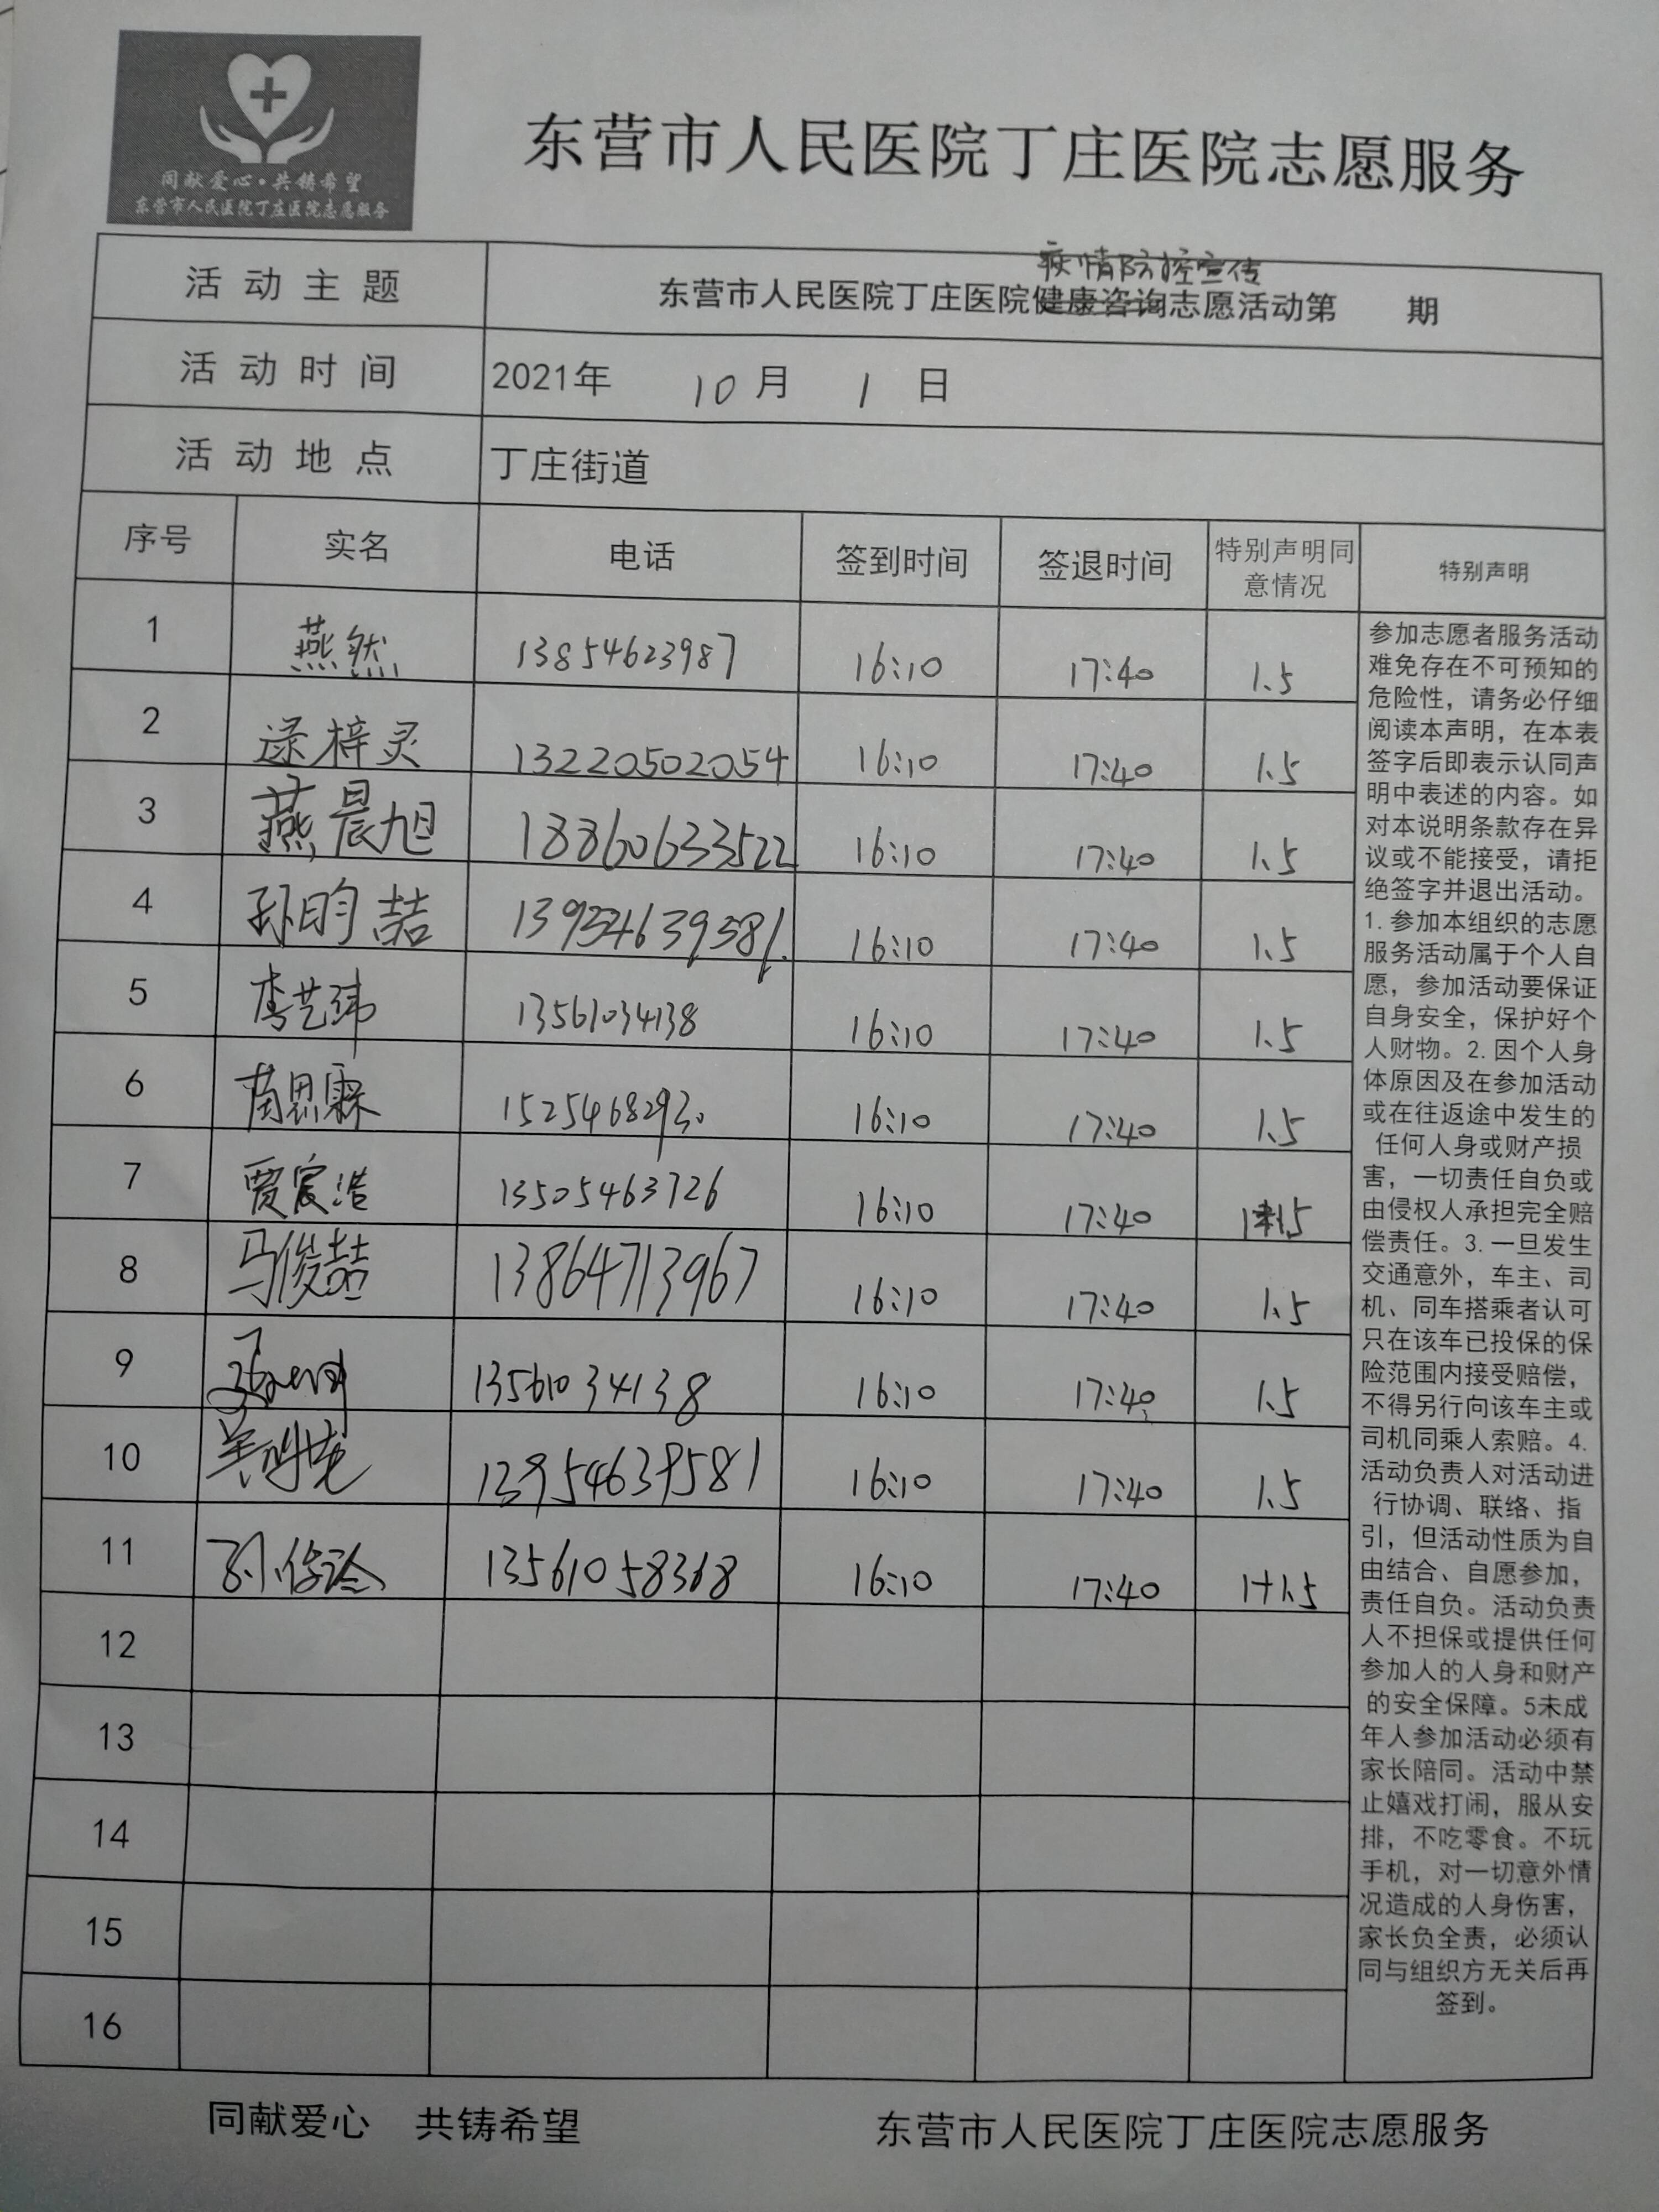 同献爱心·共铸希望
东营市人民医院丁庄医院志愿服务
东营市人民医院丁庄医院志愿服务
疫情防控宣传
活动主题 东营市人民医院丁庄医院健康咨询志愿活动第 期
活动时间 2021年 10月 1 日
活动地点 丁庄街道
序号 实名 电话 签到时间 签退时间 特别声明同意情况 特别声明
1 燕然 13854623987 16:10 17:40 1.5
2 逯梓灵 13220502054 16:10 17:40 1.5
3 燕晨旭 18860633522 16:10 17:40 1.5
4 孙昀喆 13954639581 16:10 17:40 1.5
5 李艺玮 13561034138 16:10 17:40 1.5
6 苗思霖 15254682930 16:10 17:40 1.5
7 贾宸浩 13505463726 16:10 17:40
8 马俊喆 13864713967 16:10 17:40 1.5
9 13561034138 16:10 17:40 1.5
10 13954639581 16:10 17:40 1.5
11 13561058368 16:10 17:40 1+1.5
12
13
14
15
16
参加志愿者服务活动
难免存在不可预知的
危险性，请务必仔细
阅读本声明，在本表
签字后即表示认同声
明中表述的内容。如
对本说明条款存在异
议或不能接受，请拒
绝签字并退出活动。
1.参加本组织的志愿
服务活动属于个人自
愿，参加活动要保证
自身安全，保护好个
人财物。2.因个人身
体原因及在参加活动
或在往返途中发生的
任何人身或财产损
害，一切责任自负或
由侵权人承担完全赔
偿责任。3.一旦发生
交通意外，车主、司
机、同车搭乘者认可
只在该车已投保的保
险范围内接受赔偿，
不得另行向该车主或
司机同乘人索赔。4.
活动负责人对活动进
行协调、联络、指
引，但活动性质为自
由结合、自愿参加，
责任自负。活动负责
人不担保或提供任何
参加人的人身和财产
的安全保障。5未成
年人参加活动必须有
家长陪同。活动中禁
止嬉戏打闹，服从安
排，不吃零食。不玩
手机，对一切意外情
况造成的人身伤害，
家长负全责，必须认
同与组织方无关后再
签到。
同献爱心 共铸希望 东营市人民医院丁庄医院志愿服务